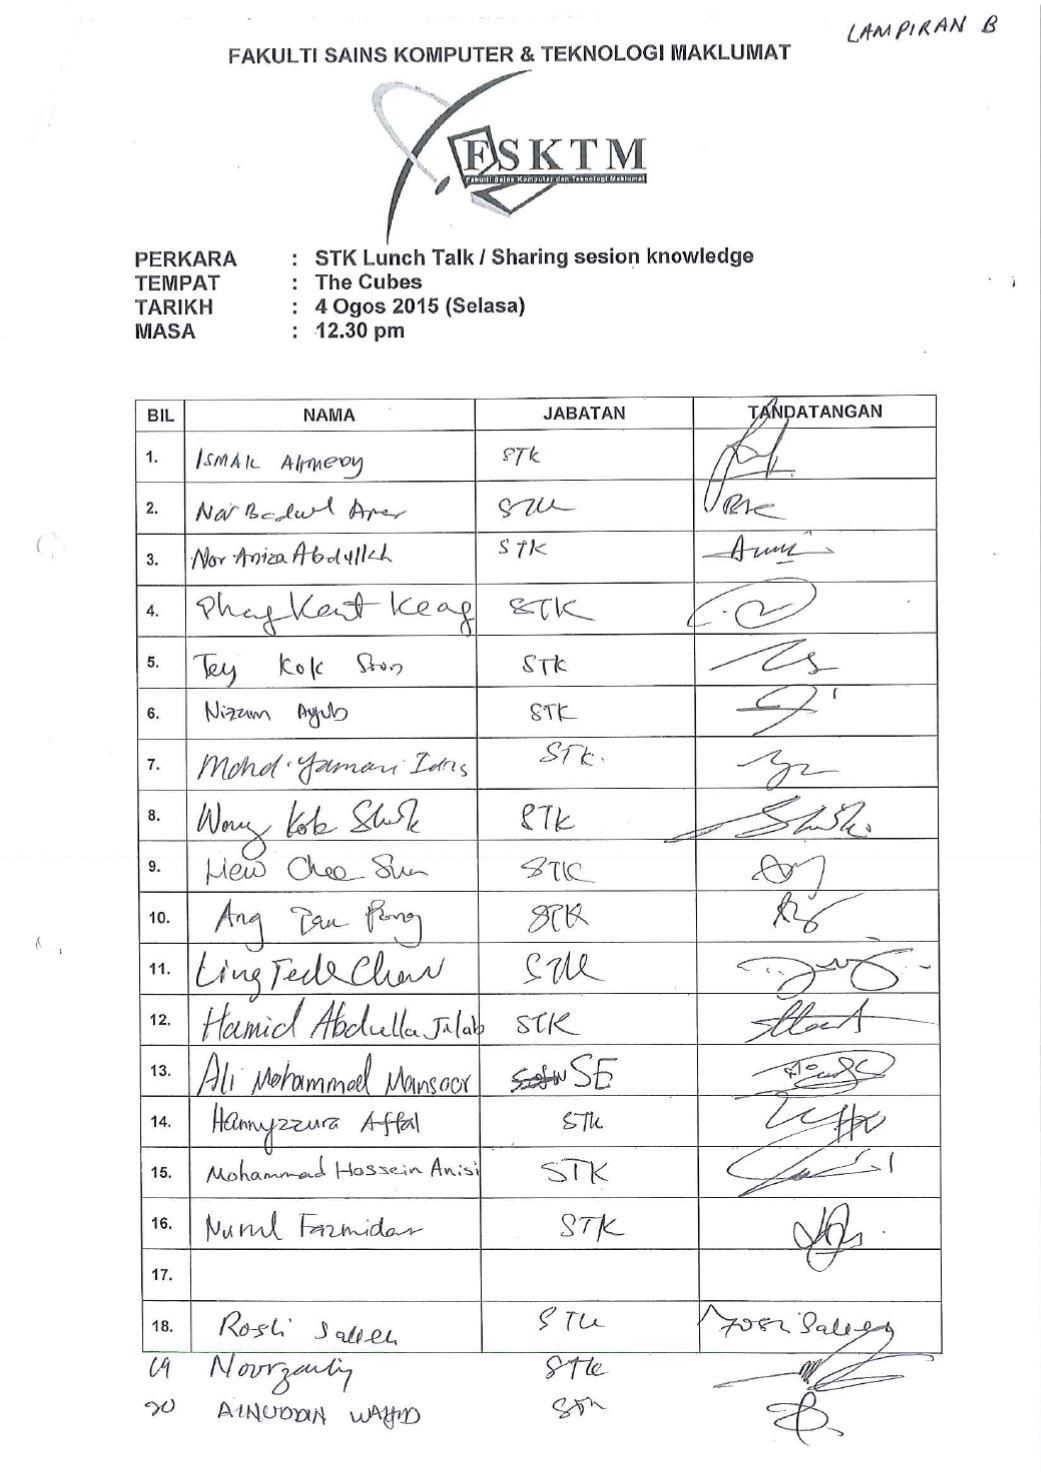 LAMPIRAN B
FAKULTI SAINS KOMPUTER & TEKNOLOGI MAKLUMAT
FSKTM
Fakulti Sains Komputer dan Teknologi Maklumat
PERKARA : STK Lunch Talk / Sharing sesion knowledge
TEMPAT : The Cubes
TARIKH : 4 Ogos 2015 (Selasa)
MASA : 12.30 pm
BIL NAMA JABATAN TANDATANGAN
1. ISMAIL AHMEDY STK
2. Nor Badrul STK
3. Nor Aniza Abdullah STK
4. Phang Keat Keong STK
5. Tey Kok Soon STK
6. Nizam Ayub STK
7. Mohd. Yamani Idris STK.
8. Wong Kok Sheik STK
9. Liew Chee Sun STK
10. Ang Tan Fong STK
11. Ling Teck Chaw STK
12. Hamid Abdulla Jalab STK
13. Ali Mohammed Mansoor SE
14. Hannyzzura Affal STK
15. Mohammad Hossein Anisi STK
16. Nurul Fazmidar STK
17.
18. Rosli Salleh STK Rosli Salleh
19 Noorzaily STK
20 AINUDDIN WAHID STK